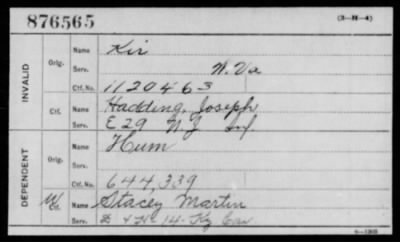 876565
(3—H—4)
INVALID
Orig.
Name Kir
Serv. W. Va
Ctf. No. 1120463
Ctf.
Name Hadding, Joseph
Serv. E 29 N J Inf.
DEPENDENT
Orig.
Name Hum
Serv.
Ctf. No. 644,339
W Ctf.
Name Stacey Martin
Serv. D & H 14 Ky Cav